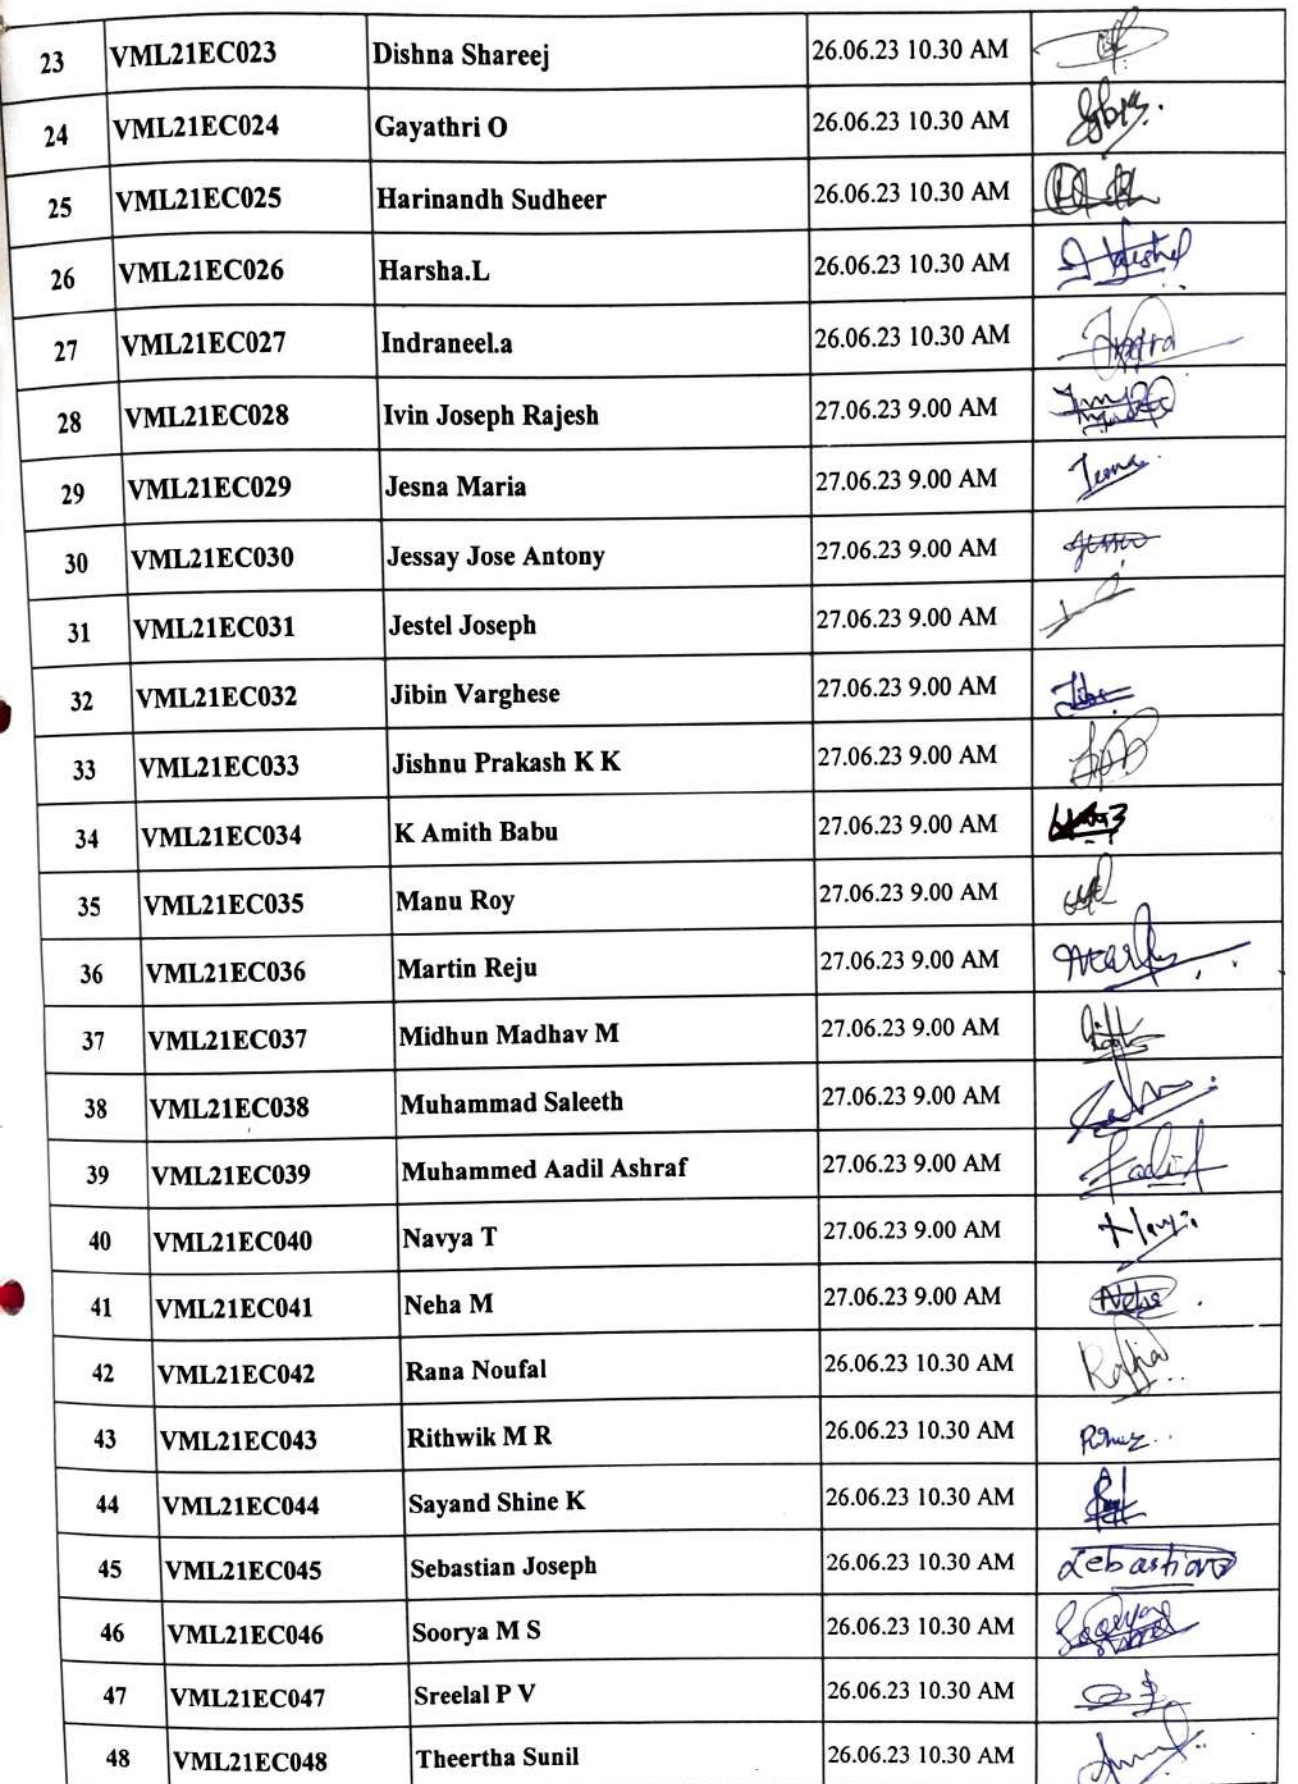 23 VML21EC023 Dishna Shareej 26.06.23 10.30 AM
24 VML21EC024 Gayathri O 26.06.23 10.30 AM
25 VML21EC025 Harinandh Sudheer 26.06.23 10.30 AM
26 VML21EC026 Harsha.L 26.06.23 10.30 AM
27 VML21EC027 Indraneel.a 26.06.23 10.30 AM
28 VML21EC028 Ivin Joseph Rajesh 27.06.23 9.00 AM
29 VML21EC029 Jesna Maria 27.06.23 9.00 AM
30 VML21EC030 Jessay Jose Antony 27.06.23 9.00 AM
31 VML21EC031 Jestel Joseph 27.06.23 9.00 AM
32 VML21EC032 Jibin Varghese 27.06.23 9.00 AM
33 VML21EC033 Jishnu Prakash K K 27.06.23 9.00 AM
34 VML21EC034 K Amith Babu 27.06.23 9.00 AM
35 VML21EC035 Manu Roy 27.06.23 9.00 AM
36 VML21EC036 Martin Reju 27.06.23 9.00 AM
37 VML21EC037 Midhun Madhav M 27.06.23 9.00 AM
38 VML21EC038 Muhammad Saleeth 27.06.23 9.00 AM
39 VML21EC039 Muhammed Aadil Ashraf 27.06.23 9.00 AM
40 VML21EC040 Navya T 27.06.23 9.00 AM
41 VML21EC041 Neha M 27.06.23 9.00 AM Neha
42 VML21EC042 Rana Noufal 26.06.23 10.30 AM
43 VML21EC043 Rithwik M R 26.06.23 10.30 AM
44 VML21EC044 Sayand Shine K 26.06.23 10.30 AM
45 VML21EC045 Sebastian Joseph 26.06.23 10.30 AM Sebastian
46 VML21EC046 Soorya M S 26.06.23 10.30 AM
47 VML21EC047 Sreelal P V 26.06.23 10.30 AM
48 VML21EC048 Theertha Sunil 26.06.23 10.30 AM